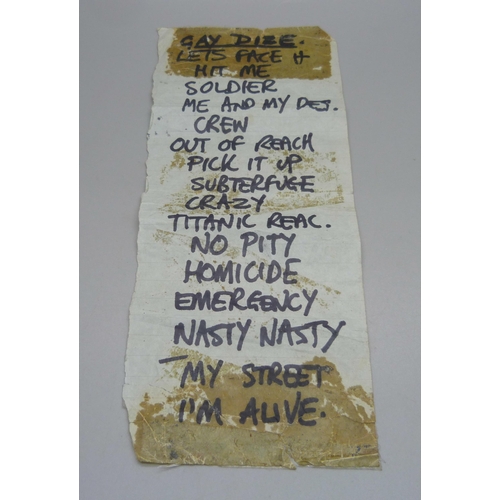 GAY DIZE.
LETS FACE IT
HIT ME
SOLDIER
ME AND MY DES.
CREW
OUT OF REACH
PICK IT UP
SUBTERFUGE
CRAZY
TITANIC REAC.
NO PITY
HOMICIDE
EMERGENCY
NASTY NASTY
MY STREET
I'M ALIVE.